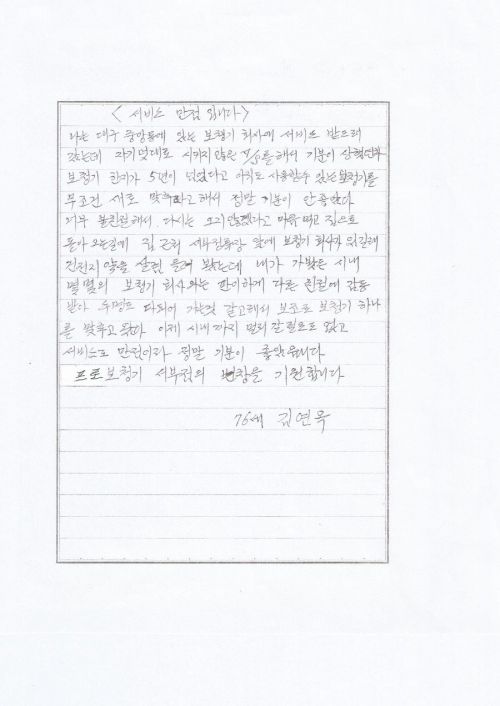 < 서비스 만점 입니다 >
나는 대구 중앙통에 있는 보청기 회사에 서비스 받으러
갔는데 자기멋대로 시키지 않은 A/S를 해서 기분이 상했는데
보청기 한지가 5년이 넘었다고 아직도 사용할수 있는 보청기를
무조건 새로 맞추라고 해서 정말 기분이 안좋았다
너무 불친절해서 다시는 오지 않겠다고 마음 먹고 집으로
돌아 오는길에 집 근처 서부 앞에 보청기 회사가 있길래
건전지 약을 살려 들려 봤는데 내가 가봤든 시내
몇몇의 보청기 회사와는 판이하게 다른 친절에 감동
받아 수명도 다되어 가는것 같고해서 보조로 보청기 하나
를 맞추고 왔다 이제 시내까지 멀리 갈 필요도 없고
서비스도 만점이라 정말 기분이 좋았읍니다
프로보청기 서부점의 번창을 기원합니다
76세 김연목